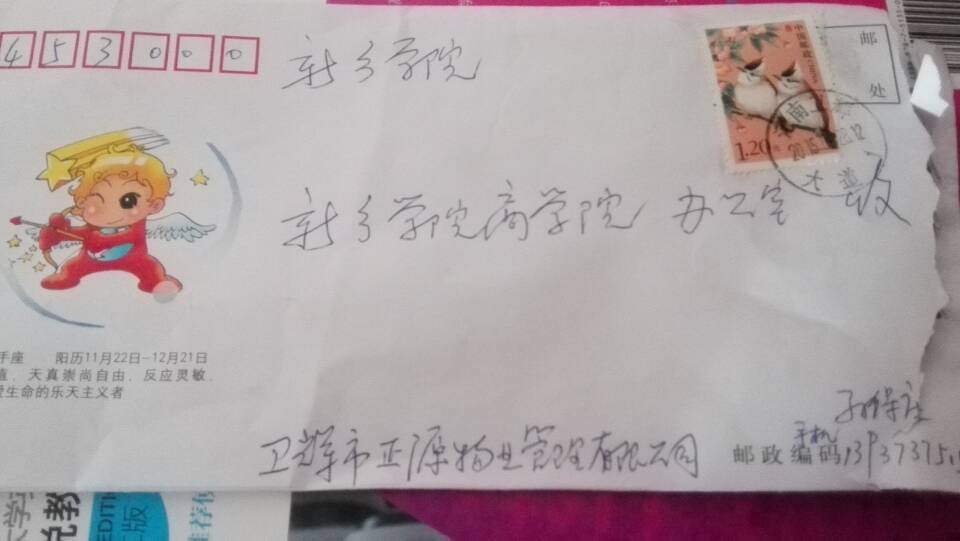 453000
新乡学院
邮
处
中国邮政
1.20元
新乡学院商学院 办公室 收
手座 阳历11月22日-12月21日
直，天真崇尚自由，反应灵敏，
爱生命的乐天主义者
卫辉市正源物业管理有限公司
手机
邮政编码
EDITI
版